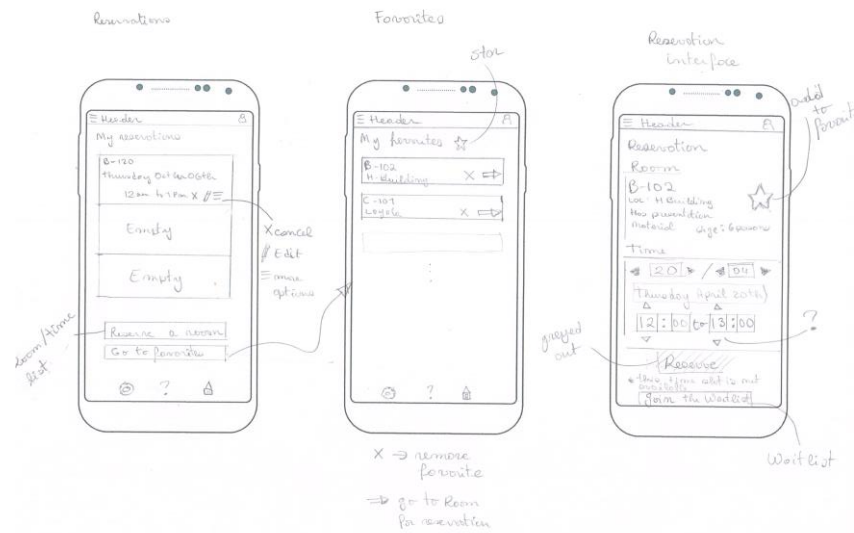 Reservations
Header
My reservations
B-120
Thursday October 06th
12 am to 1 pm X
Empty
Empty
Reserve a room
Go to favorites
?
X cancel
Edit
more
options
room/time
list
Favorites
star
Header
My favorites
B-102
H-Building X
C-101
Loyola X
?
X → remove
favorite
⇒ go to Room
for reservation
Reservation
interface
add
to
favorit
Header
Reservation
Room
B-102
Loc: H Building
Has presentation
material size: 6 persons
Time
20 / 04
Thursday April 20th
12:00 to 13:00
?
greyed
out
Reserve
* this time slot is not
available
Join the Waitlist
Waitlist